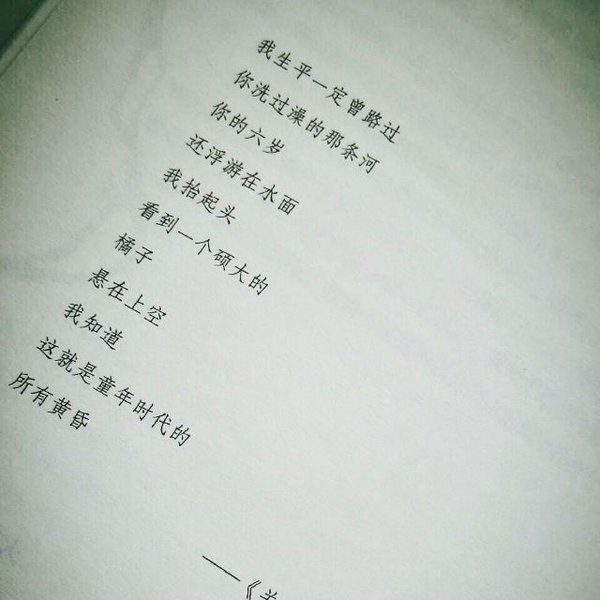 我生平一定曾路过
你洗过澡的那条河
你的六岁
还浮游在水面
我抬起头
看到一个硕大的
橘子
悬在上空
我知道
这就是童年时代的
所有黄昏
——《